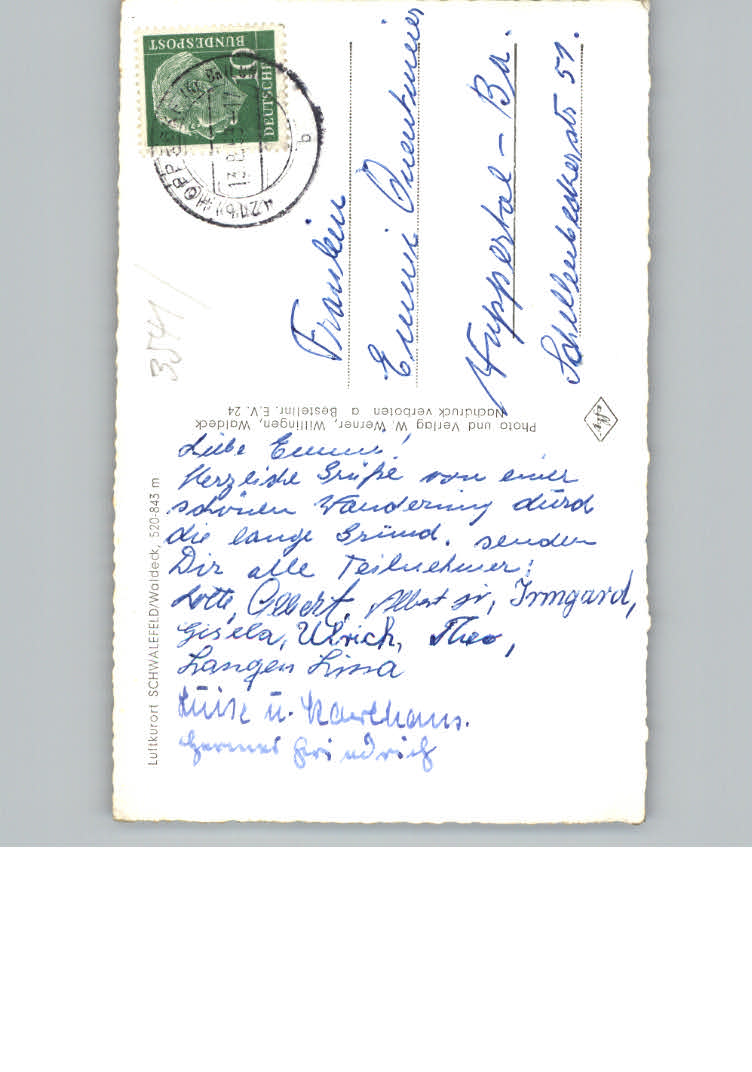 DEUTSCHE
BUNDESPOST
10
13.8.
b
Fräulein
Emmi
Wuppertal-Ba.
51.
3541/
Photo und Verlag W. Werner, Willingen, Waldeck
Nachdruck verboten a Bestellnr. E.V. 24
Luftkurort SCHWALEFELD/Waldeck, 520-843 m
Liebe Emmi!
Herzliche Grüße von einer
schönen Wanderung durch
die lange Grund. senden
Dir alle Teilnehmer:
Lotte, Albert, Albert jr, Irmgard,
Gisela, Ulrich, Theo,
Langen Lissa
Luise u. Karlhans.
Friedrich